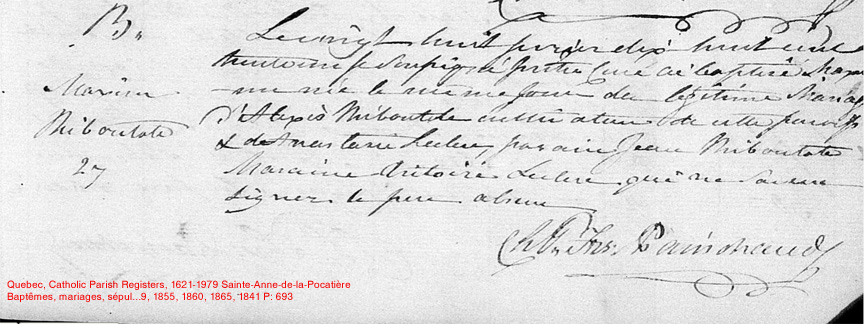 B.
Maxime
Miboutote
27
Le vingt huit janvier dix huit cent
trente un je soussigné prêtre curé ai baptisé Maxi
-me né le même jour du légitime Mariag
d'Alexis Miboutote cultivateur de cette paroiss
& de Anastasie Leclerc, parain Jean Miboutote
Maraine Victoire Leclerc qui ne savent
signer le père absent
Ch. Frs. Painchaud
Quebec, Catholic Parish Registers, 1621-1979 Sainte-Anne-de-la-Pocatière
Baptêmes, mariages, sépul...9, 1855, 1860, 1865, 1841 P: 693